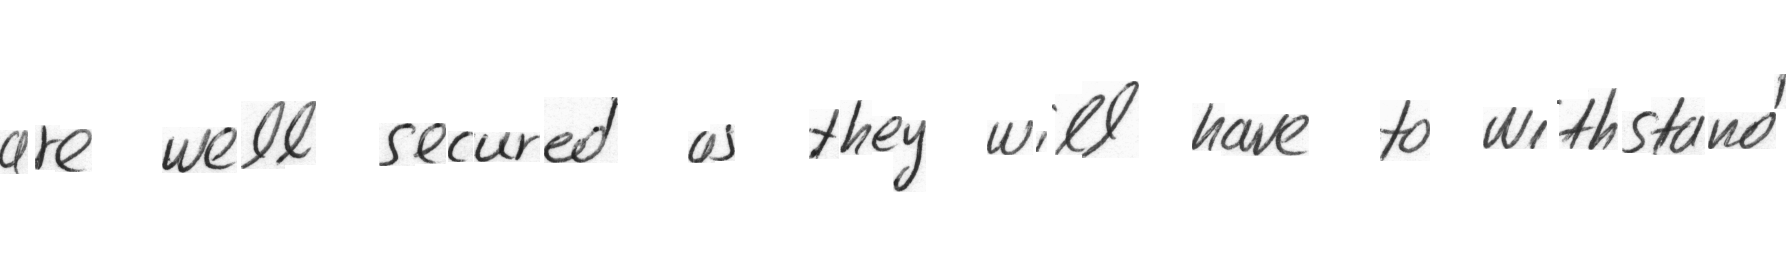 are well secured as they will have to withstand